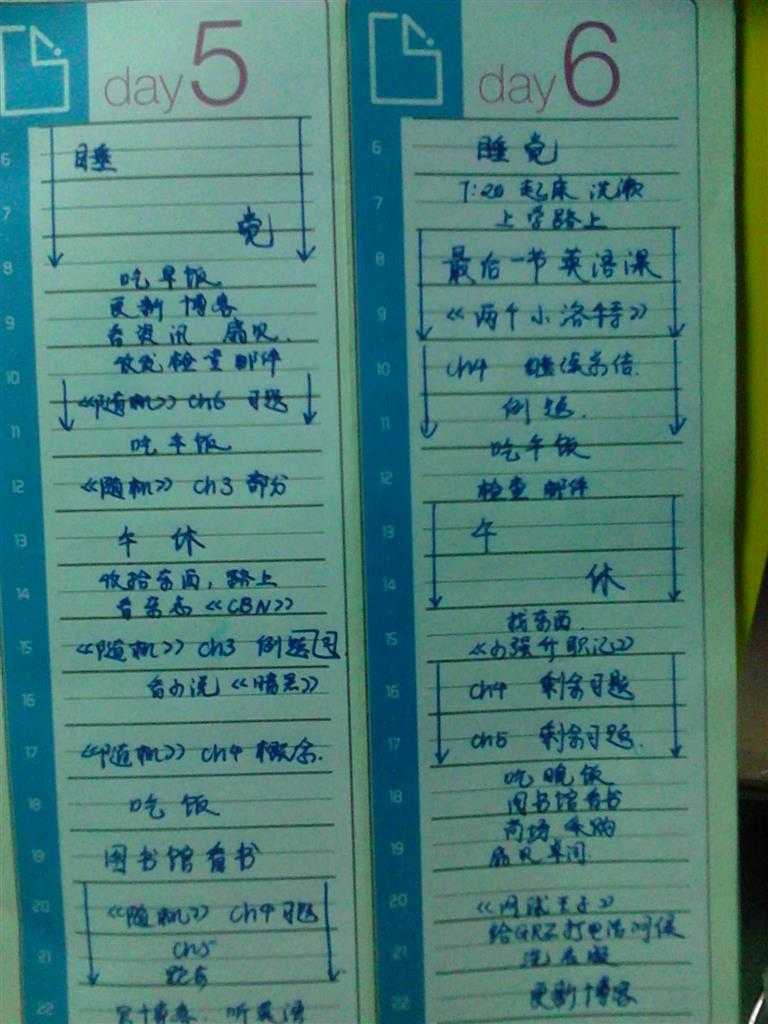 day5
6
睡
7
觉
8
吃早饭
更新博客
9
看资讯 扇贝.
收发检查邮件
10
《随机》 ch6 习题
11
吃午饭
12
《随机》 ch3 部分
13
午 休
14
收拾东西, 路上
看杂志《CBN》
15
《随机》 ch3 例题
16
看小说《暗黑》
17
《随机》 ch4 概念.
18
吃饭
19
图书馆看书
20
《随机》 ch4 习题
21
ch5
跑步
22
博客 听英语
day6
6
睡觉
7
7:20 起床 洗漱
上学路上
8
最后一节英语课
9
《两个小洛特》
10
ch4 继续总结.
例题.
11
吃午饭
12
检查邮件
13
午
14
休
找东西.
15
《小强升职记》
16
ch4 剩余习题
17
ch5 剩余习题.
吃晚饭
18
图书馆看书
商场采购
19
扇贝单词
20
《网球王子》
给GRZ打电话问候
21
洗衣服
22
更新博客